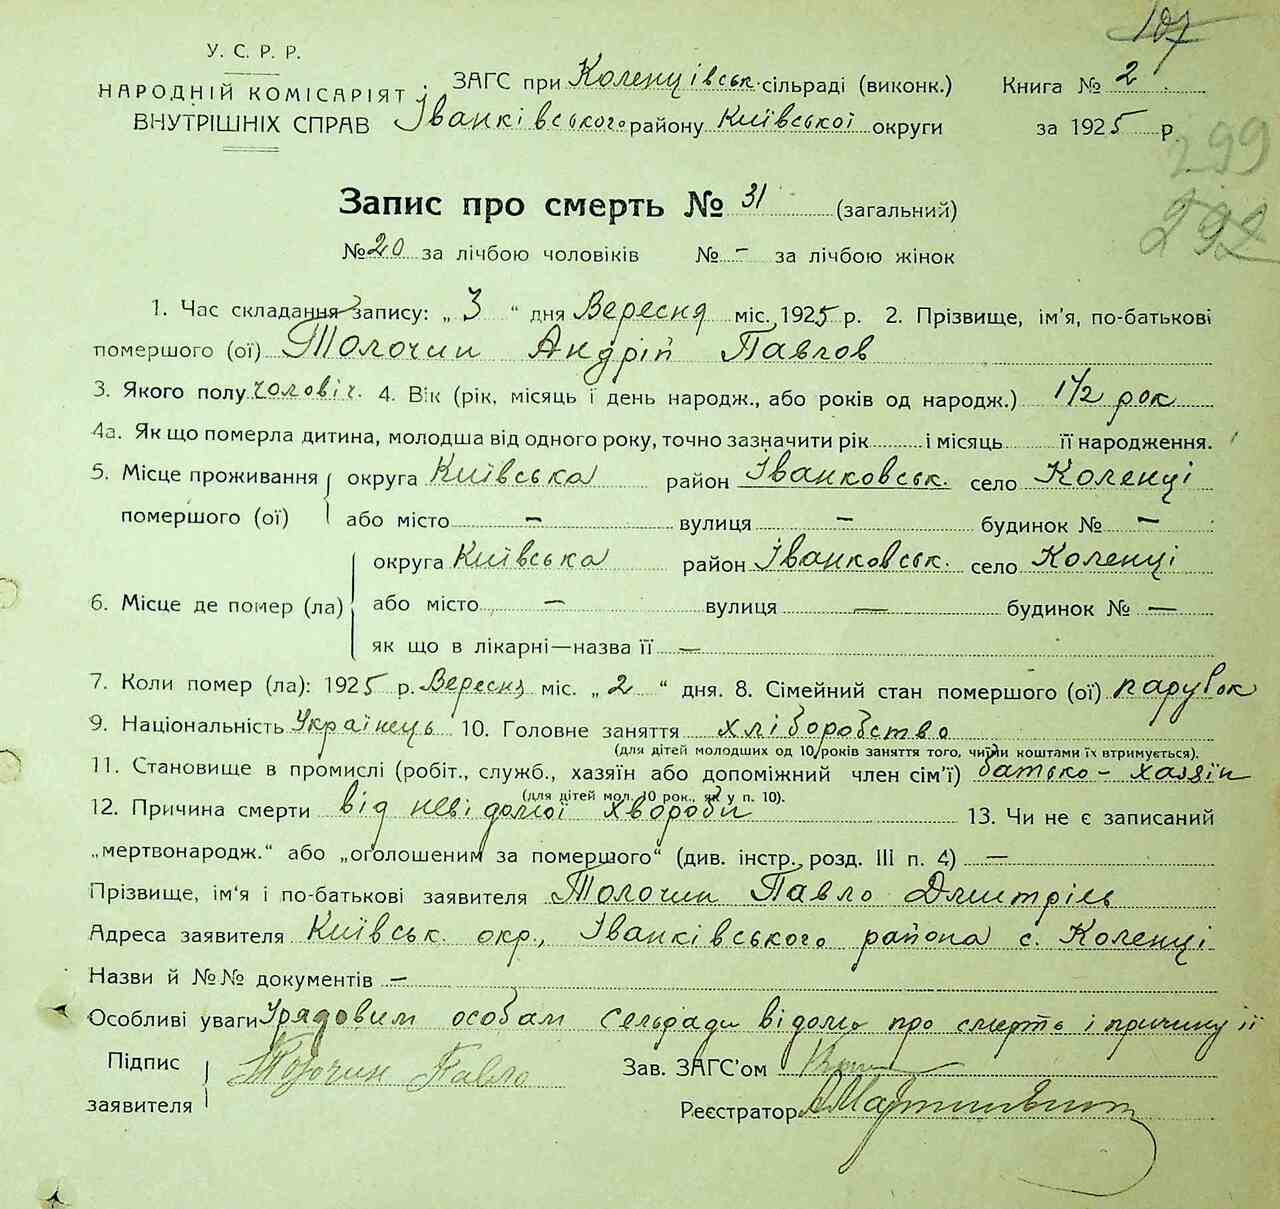 107
У. С. Р. Р.
НАРОДНІЙ КОМІСАРІЯТ
ВНУТРІШНІХ СПРАВ
ЗАГС при Коленцівськ. сільраді (виконк.)
Іванківського району Київської округи
Книга № 2
за 1925 р.
299
292
Запис про смерть № 31 (загальний)
№ 20 за лічбою чоловіків № – за лічбою жінок
1. Час складання запису: „ 3 “ дня Вересня міс. 1925 р. 2. Прізвище, ім'я, по-батькові
помершого (ої) Толочин Андрій Павлов
3. Якого полу чоловіч. 4. Вік (рік, місяць і день народж., або років од народж.) 1 1/2 рок
4а. Як що померла дитина, молодша від одного року, точно зазначити рік і місяць її народження.
5. Місце проживання округа Київська район Іванковськ. село Коленці
помершого (ої) або місто – вулиця – будинок № –
округа Київська район Іванковськ. село Коленці
6. Місце де помер (ла) або місто – вулиця — будинок № —
як що в лікарні—назва її —
7. Коли помер (ла): 1925 р. Вересня міс. „ 2 “ дня. 8. Сімейний стан помершого (ої) парубок
9. Національність Українець 10. Головне заняття хліборобство
(для дітей молодших од 10 років заняття того, чиїми коштами їх втримується).
11. Становище в промислі (робіт., служб., хазяїн або допоміжний член сім'ї) батько - хазяїн
(для дітей мол. 10 рок., як у п. 10).
12. Причина смерти від невідомої хвороби 13. Чи не є записаний
„мертвонародж.“ або „оголошеним за помершого“ (див. інстр. розд. III п. 4) —
Прізвище, ім'я і по-батькові заявителя Толочин Павло
Адреса заявителя Київськ. окр., Іванківського района с. Коленці
Назви й №№ документів –
Особливі уваги Урядовим особам сельради відомо про смерть і причину її
Підпис
заявителя
Толочин Павло
Зав. ЗАГС'ом
Реєстратор